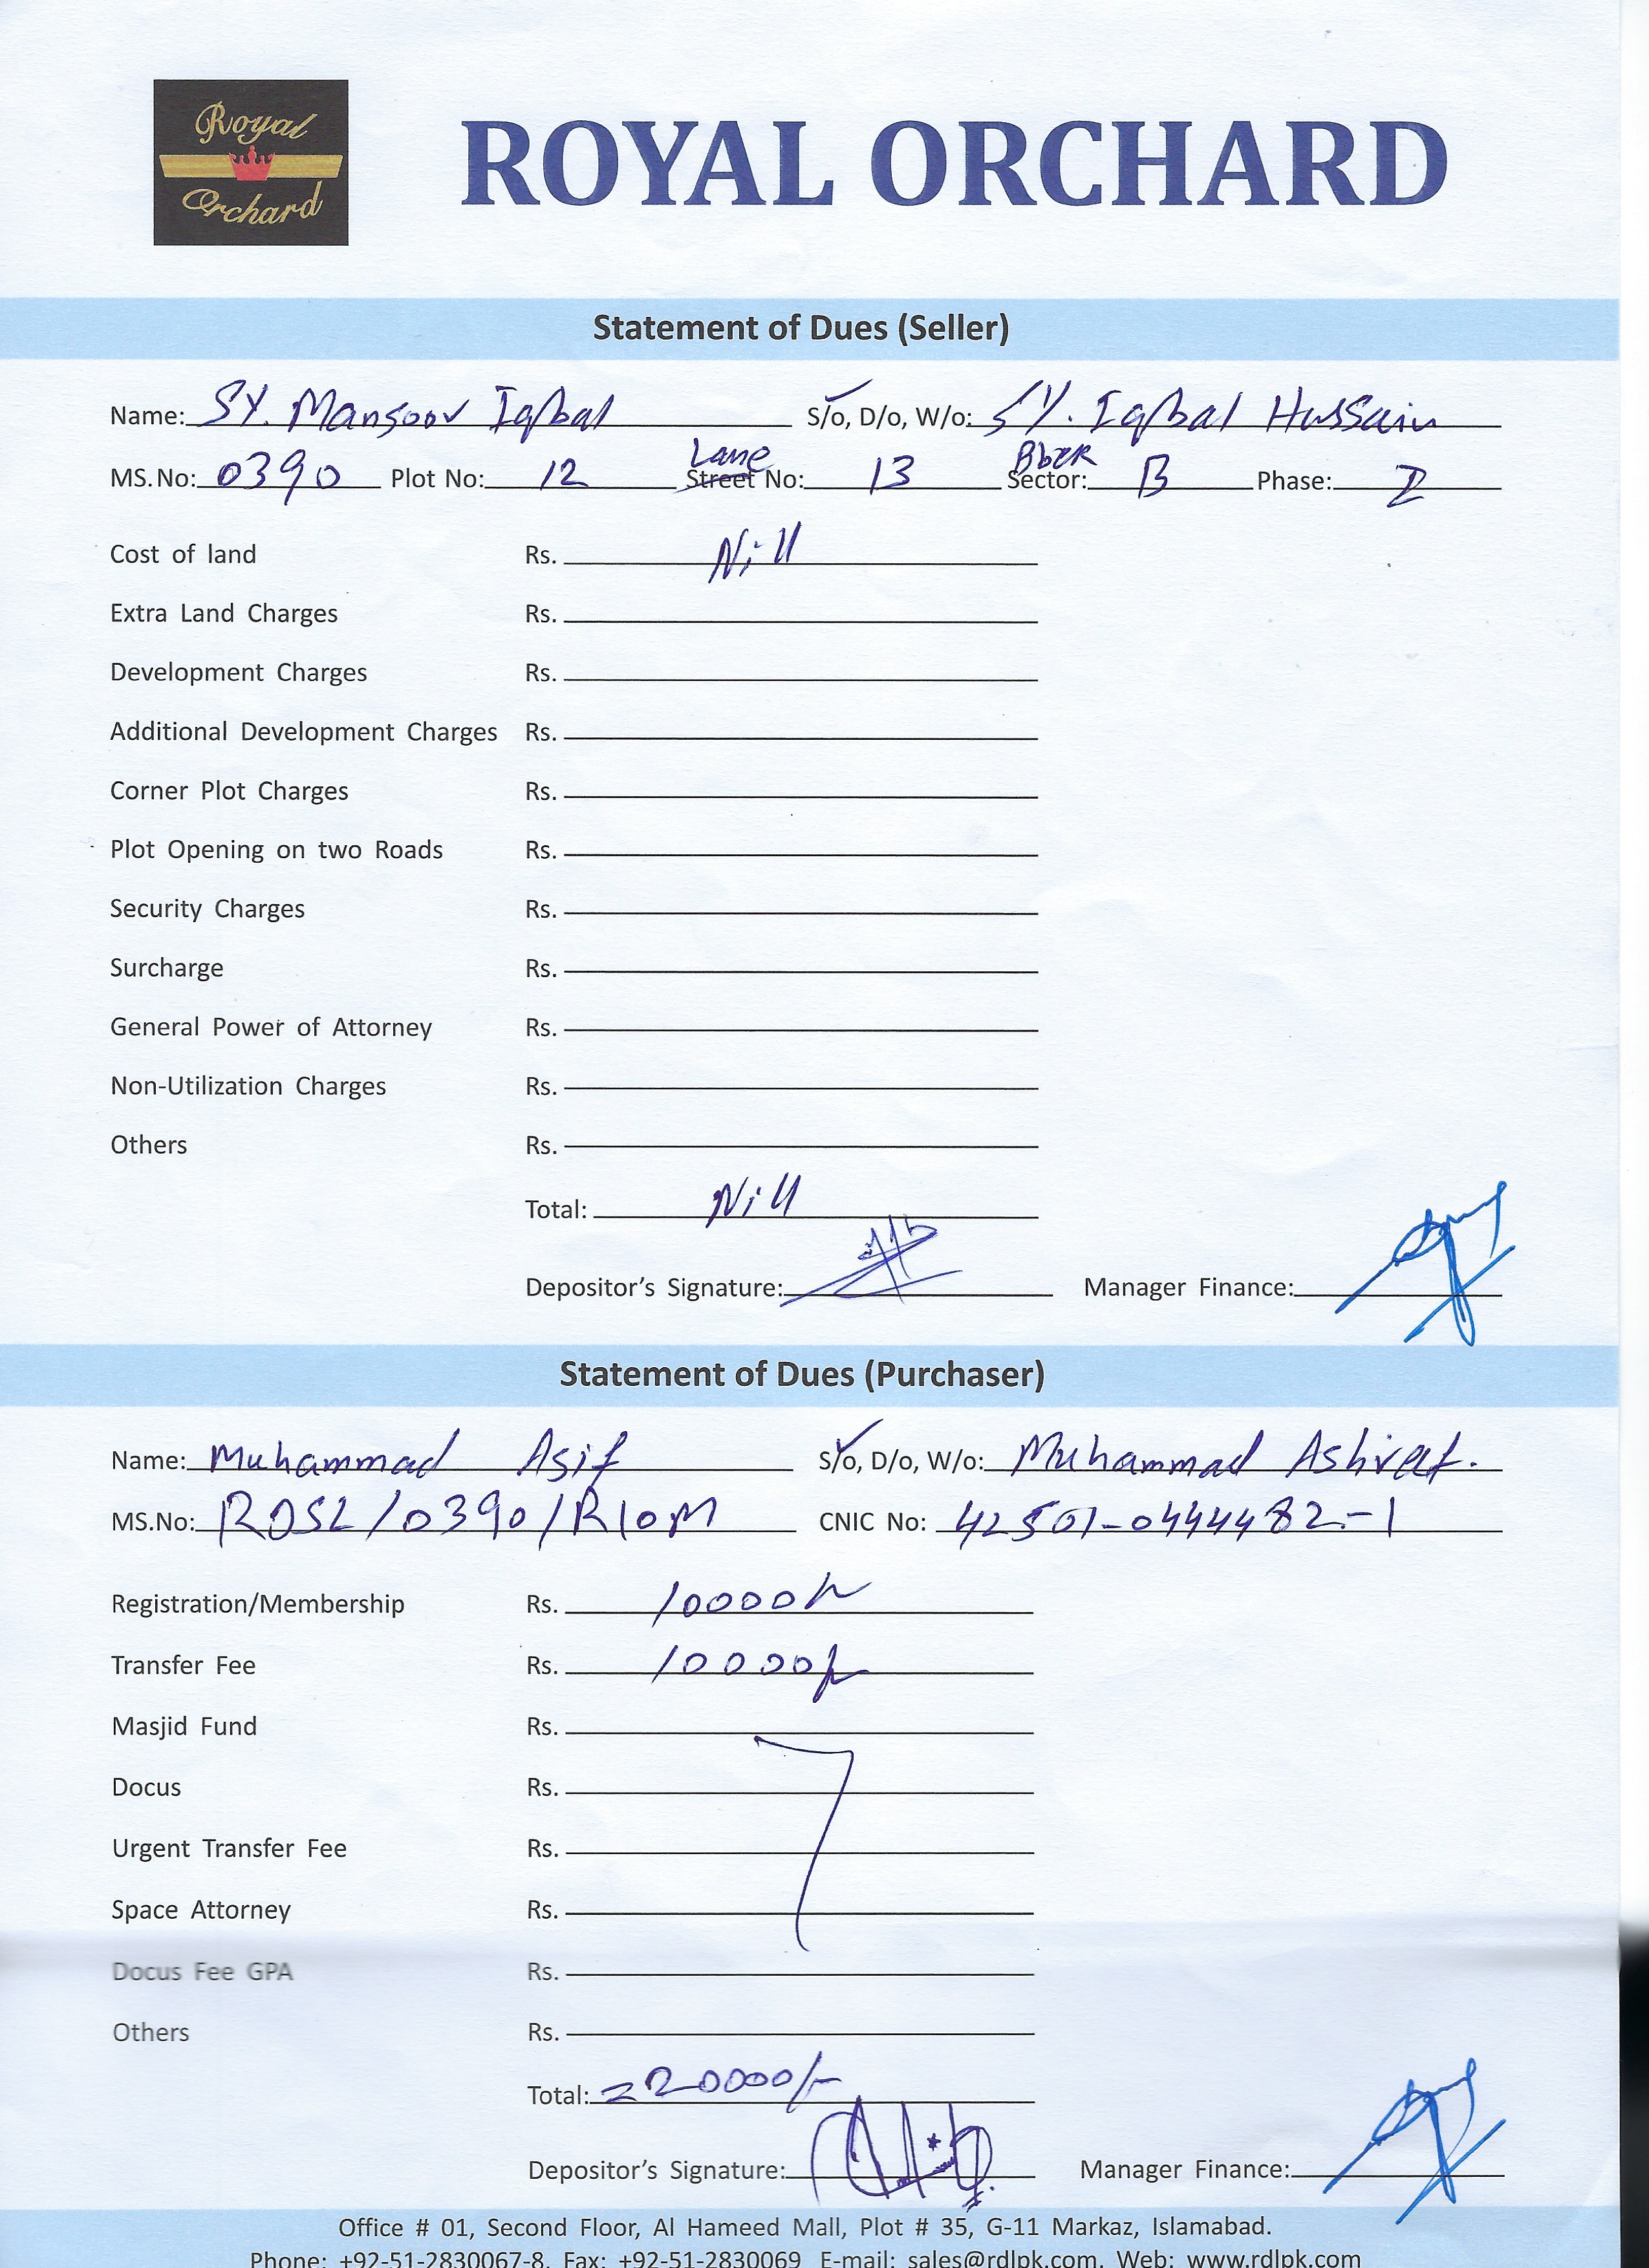 Royal
Orchard
ROYAL ORCHARD
Statement of Dues (Seller)
Name: SY. Mansoor Iqbal S/o, D/o, W/o: SY. Iqbal Hussain
Lane Block
MS.No: 0390 Plot No: 12 Street No: 13 Sector: B Phase: I
Cost of land Rs. Nill
Extra Land Charges Rs.
Development Charges Rs.
Additional Development Charges Rs.
Corner Plot Charges Rs.
Plot Opening on two Roads Rs.
Security Charges Rs.
Surcharge Rs.
General Power of Attorney Rs.
Non-Utilization Charges Rs.
Others Rs.
Total: Nill
Depositor's Signature: Manager Finance:
Statement of Dues (Purchaser)
Name: Muhammad Asif S/o, D/o, W/o: Muhammad Ashraf.
MS.No: RDSL/0390/R10M CNIC No: 42501-0444482-1
Registration/Membership Rs. 10000/-
Transfer Fee Rs. 10000/-
Masjid Fund Rs.
Docus Rs.
Urgent Transfer Fee Rs.
Space Attorney Rs.
Docus Fee GPA Rs.
Others Rs.
Total: =20000/-
Depositor's Signature: Manager Finance:
Office # 01, Second Floor, Al Hameed Mall, Plot # 35, G-11 Markaz, Islamabad.
Phone: +92-51-2830067-8, Fax: +92-51-2830069 E-mail: sales@rdlpk.com, Web: www.rdlpk.com